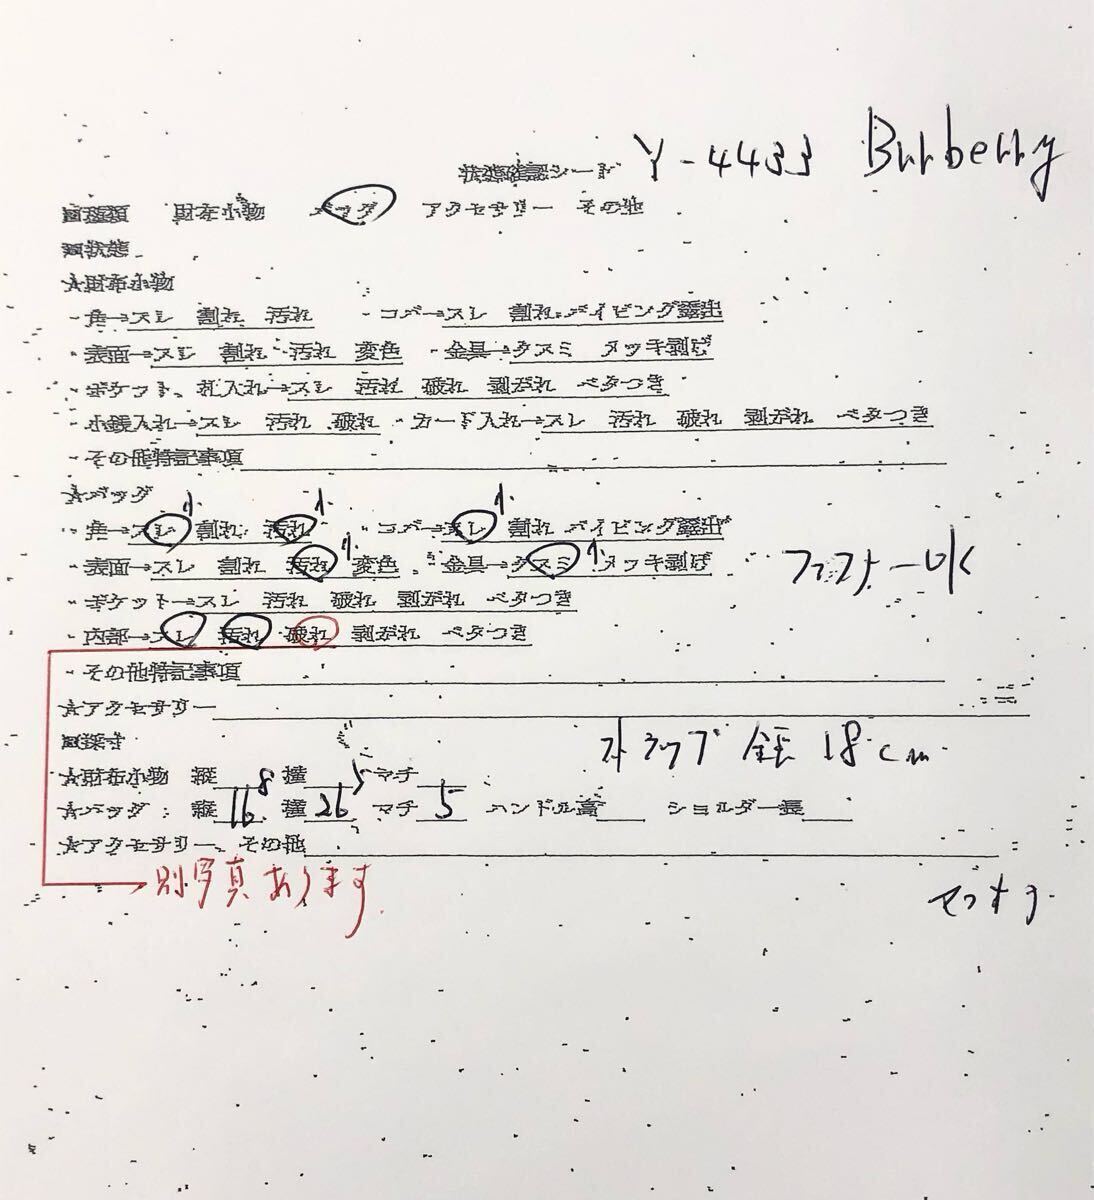 状態確認シート Y-4433 Burberry
■種類 財布小物 バッグ アクセサリー その他
■状態
★財布小物
・角→スレ 割れ 汚れ ・コバ→スレ 割れ パイピング露出
・表面→スレ 割れ 汚れ 変色 ・金具→クスミ メッキ剥げ
・ポケット、札入れ→スレ 汚れ 破れ 剥がれ ベタつき
・小銭入れ→スレ 汚れ 破れ ・カード入れ→スレ 汚れ 破れ 剥がれ ベタつき
・その他特記事項
★バッグ
・角→スレ 小 割れ 汚れ 小 ・コバ→スレ 小 割れ パイピング露出
・表面→スレ 割れ 汚れ 小 変色 ・金具→クスミ 小 メッキ剥げ
ファスナーOK
・ポケット→スレ 汚れ 破れ 剥がれ ベタつき
・内部→スレ 汚れ 破れ 剥がれ ベタつき
・その他特記事項
★アクセサリー
■採寸
ストラップ 全長 18cm
★財布小物 縦 8 横 15 マチ
★バッグ：縦 16 横 26 マチ 5 ハンドル高 ショルダー長
★アクセサリー、その他
別写真あります